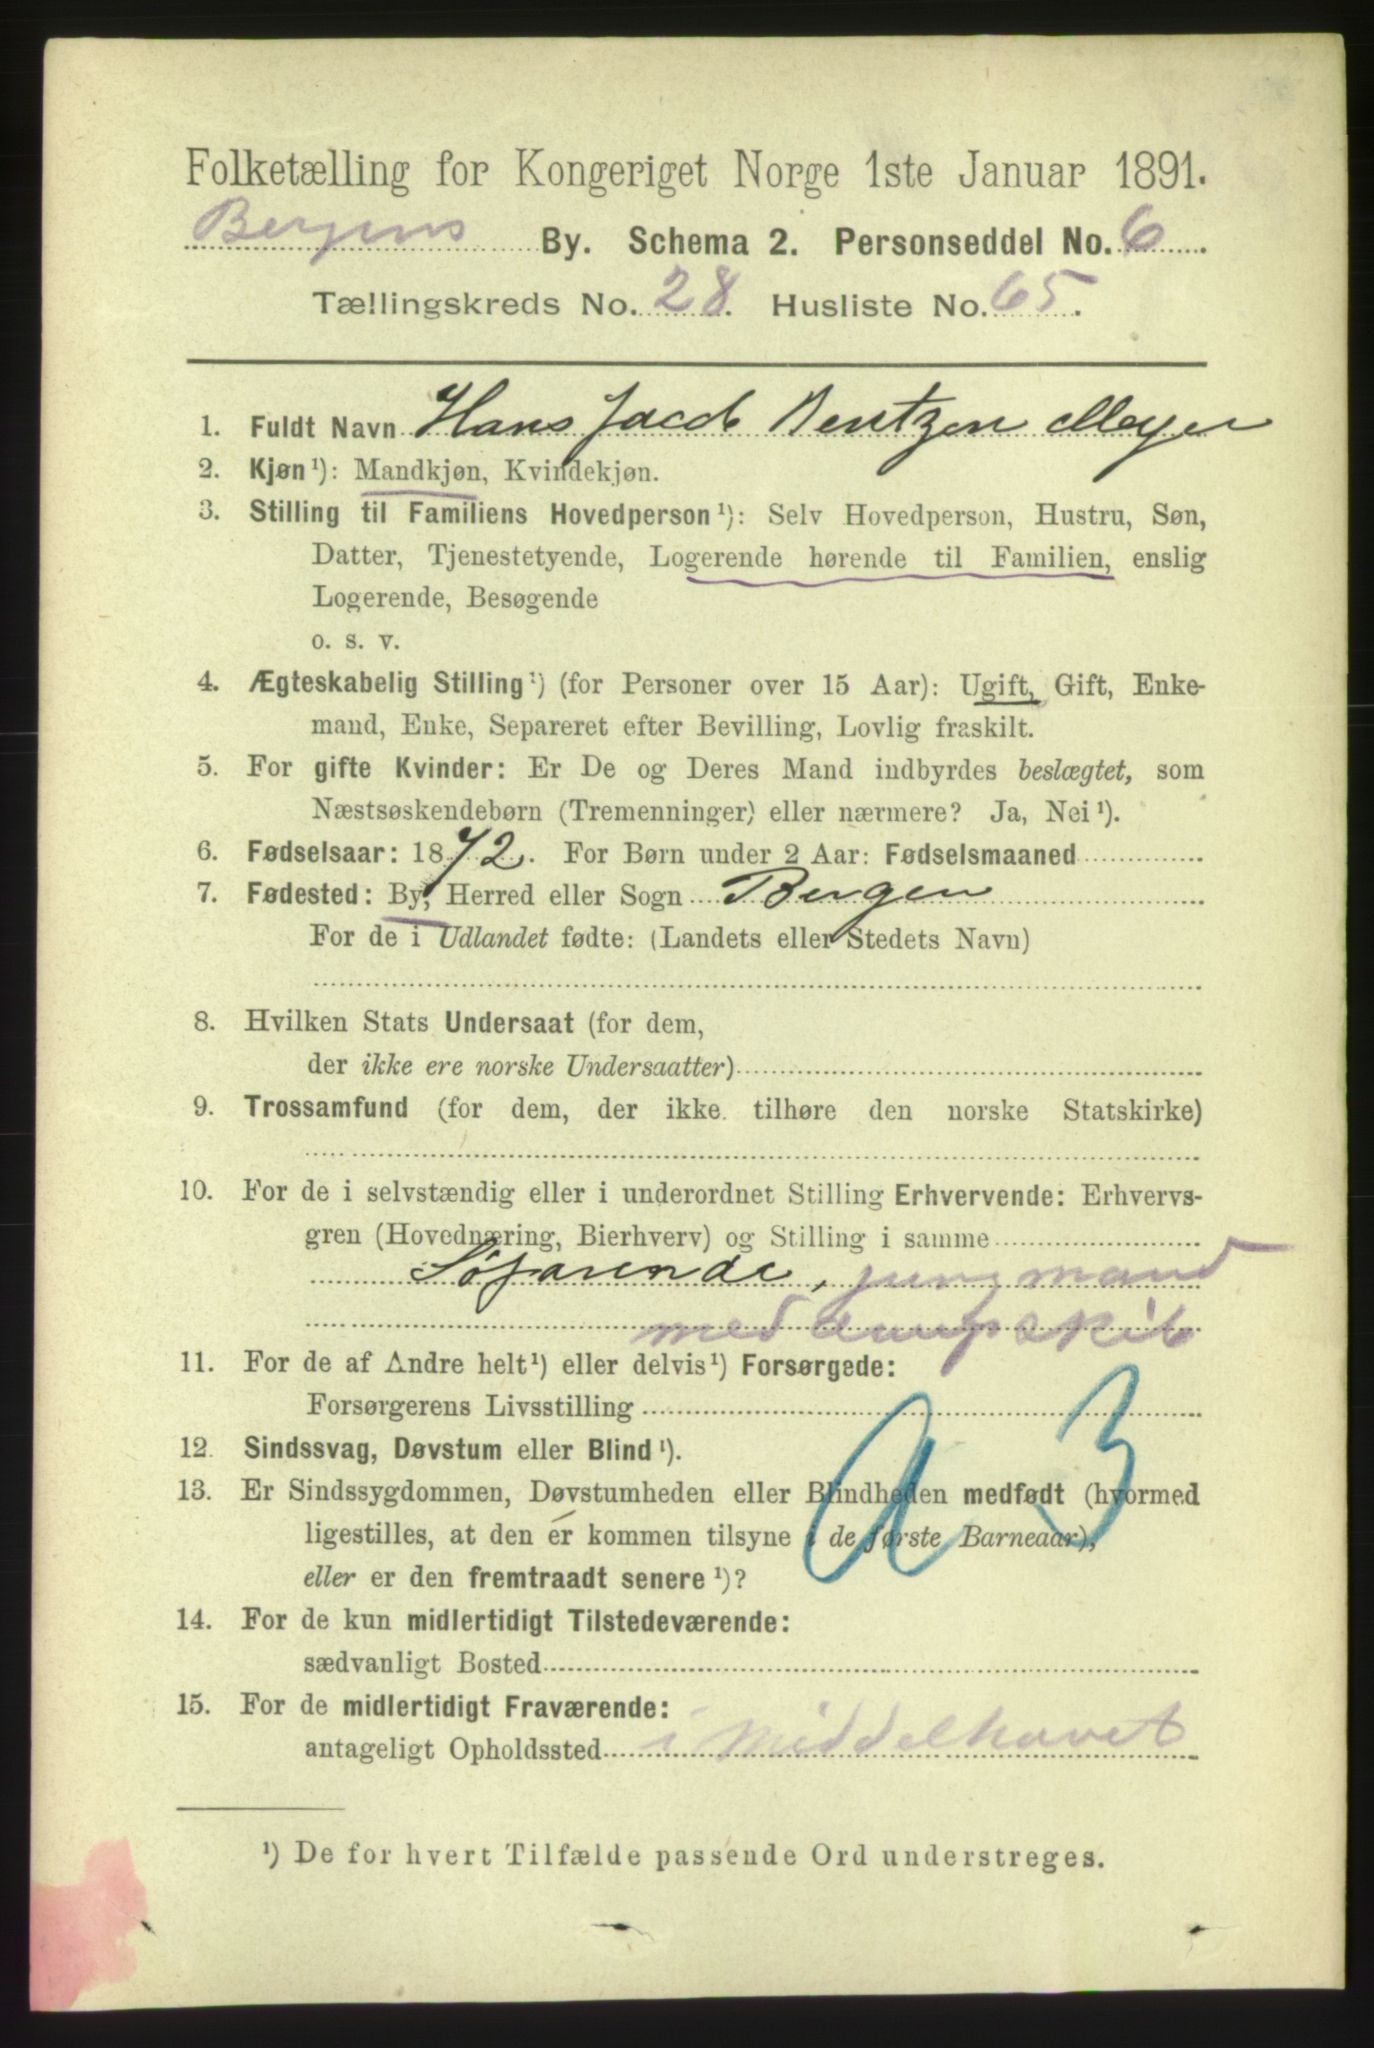 Folketælling for Kongeriget Norge 1ste Januar 1891.
Bergens By. Schema 2. Personseddel No. 6.
Tællingskreds No. 28. Husliste No. 65.
1. Fuldt Navn Hans Jacob Bentzen Meyer
2. Kjøn ¹): Mandkjøn, Kvindekjøn.
3. Stilling til Familiens Hovedperson ¹): Selv Hovedperson, Hustru, Søn,
Datter, Tjenestetyende, Logerende hørende til Familien, enslig
Logerende, Besøgende
o. s. v.
4. Ægteskabelig Stilling ¹) (for Personer over 15 Aar): Ugift, Gift, Enke-
mand, Enke, Separeret efter Bevilling, Lovlig fraskilt.
5. For gifte Kvinder: Er De og Deres Mand indbyrdes beslægtet, som
Næstsøskendebørn (Tremenninger) eller nærmere? Ja, Nei ¹).
6. Fødselsaar: 1872. For Børn under 2 Aar: Fødselsmaaned
7. Fødested: By, Herred eller Sogn Bergen
For de i Udlandet fødte: (Landets eller Stedets Navn)
8. Hvilken Stats Undersaat (for dem,
der ikke ere norske Undersaatter)
9. Trossamfund (for dem, der ikke tilhøre den norske Statskirke)
10. For de i selvstændig eller i underordnet Stilling Erhvervende: Erhvervs-
gren (Hovednæring, Bierhverv) og Stilling i samme
Søfarende, jungmand
med dampskib
11. For de af Andre helt ¹) eller delvis ¹) Forsørgede:
Forsørgerens Livsstilling
12. Sindssvag, Døvstum eller Blind ¹).
13. Er Sindssygdommen, Døvstumheden eller Blindheden medfødt (hvormed
ligestilles, at den er kommen tilsyne i de første Barneaar),
eller er den fremtraadt senere ¹)?
a 3
14. For de kun midlertidigt Tilstedeværende:
sædvanligt Bosted
15. For de midlertidigt Fraværende:
antageligt Opholdssted i Middelhavet
¹) De for hvert Tilfælde passende Ord understreges.